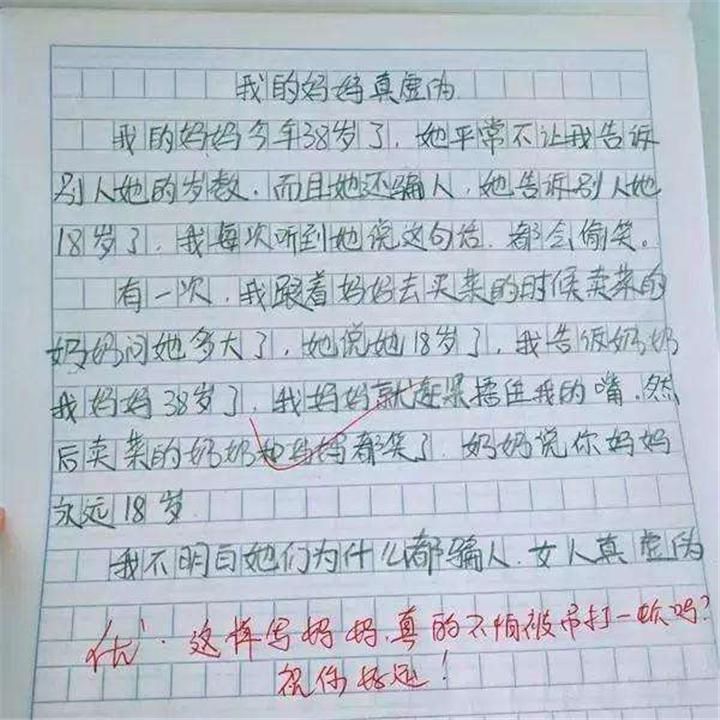 我的妈妈真虚伪
我的妈妈今年38岁了，她平常不让我告诉
别人她的岁数，而且她还骗人，她告诉别人她
18岁了，我每次听到她说这句话，都会偷笑。
有一次，我跟着妈妈去买菜的时候卖菜的
奶奶问她多大了，她说她18岁了，我告饭奶奶
我妈妈38岁了，我妈妈就赶紧捂住我的嘴，然
后卖菜的奶奶和妈妈都笑了，奶奶说你妈妈
永远18岁
我不明白她们为什么都骗人，女人真虚伪
优，这样写妈妈，真的不怕被吊打一顿吗？
祝你好运！